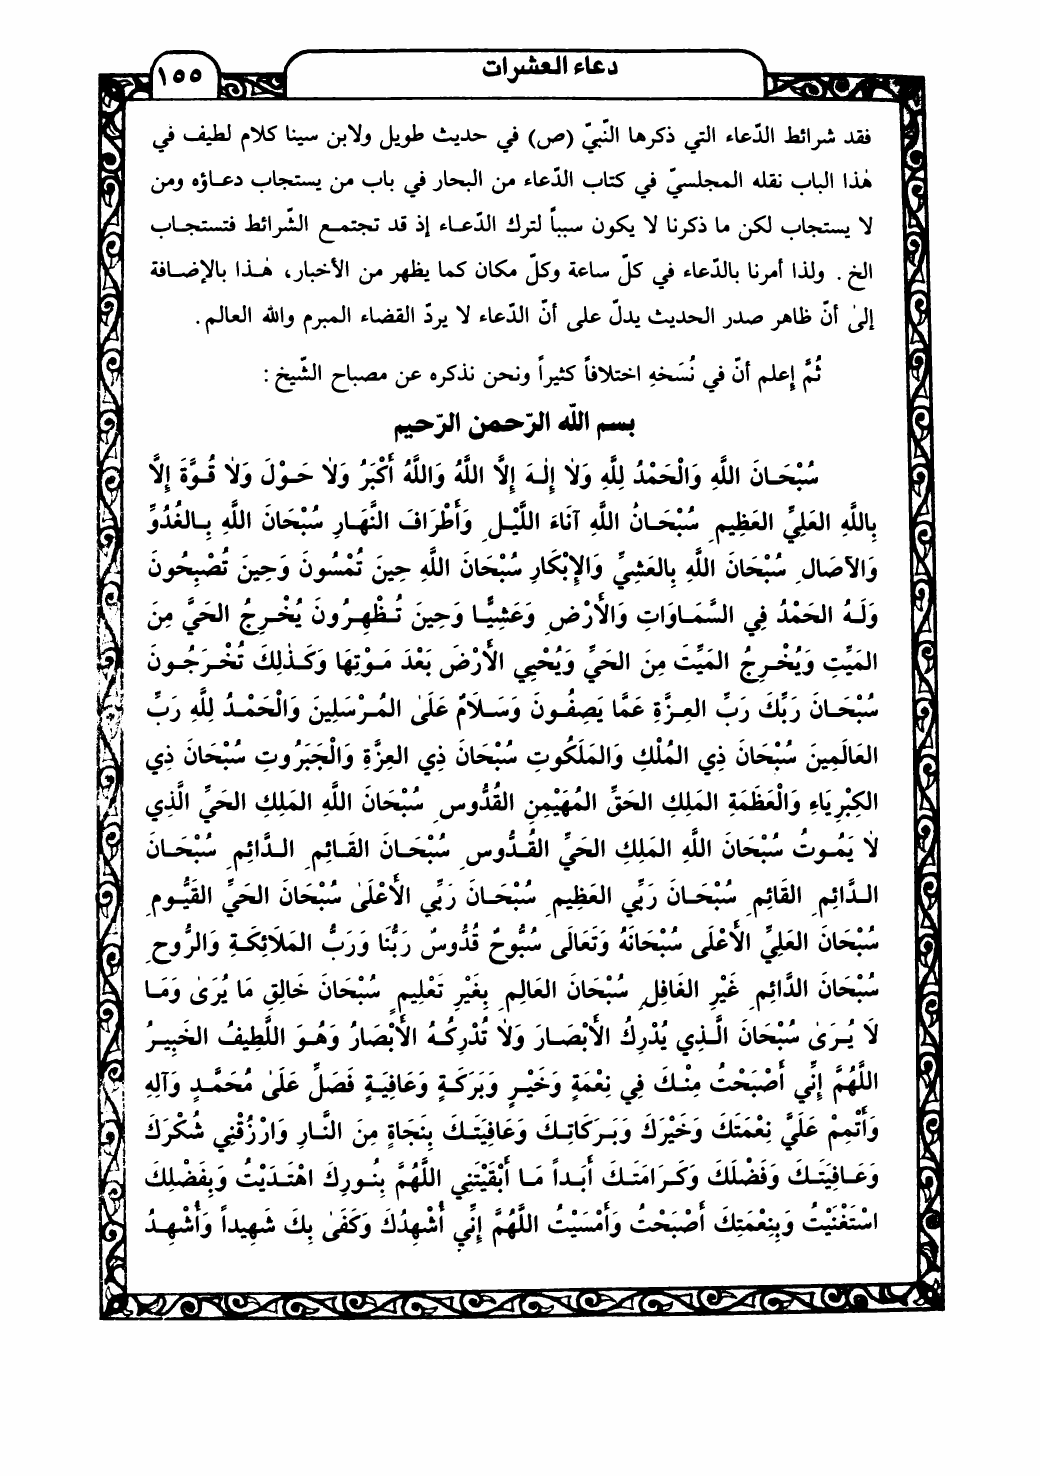 دعاء العشرات
١٥٥
فقد شرائط الدّعاء التي ذكرها النّبيّ (ص) في حديث طويل ولابن سينا كلام لطيف في
هٰذا الباب نقله المجلسيّ في كتاب الدّعاء من البحار في باب من يستجاب دعاؤه ومن
لا يستجاب لكن ما ذكرنا لا يكون سبباً لترك الدّعاء إذ قد تجتمع الشّرائط فتستجاب
الخ . ولذا أمرنا بالدّعاء في كلّ ساعة وكلّ مكان كما يظهر من الأخبار، هٰذا بالإضافة
إلىٰ أنّ ظاهر صدر الحديث يدلّ على أنّ الدّعاء لا يردّ القضاء المبرم والله العالم.
ثُمَّ إعلم أنّ في نُسَخهِ اختلافاً كثيراً ونحن نذكره عن مصباح الشّيخ :
بسم اللّه الرّحمن الرّحيم
سُبْحَانَ اللَّهِ وَالْحَمْدُ لِلَّهِ وَلاٰ إِلٰهَ إِلَّا اللَّهُ وَاللَّهُ أَكْبَرُ وَلاٰ حَوْلَ وَلاٰ قُوَّةَ إِلَّا
بِاللَّهِ العَلِيِّ العَظِيمِ سُبْحَانُ اللَّهِ آنَاءَ اللَّيْلِ وَأَطْرَافَ النَّهَارِ سُبْحَانَ اللَّهِ بِالغُدُوِّ
وَالآصَالِ سُبْحَانَ اللَّهِ بِالعَشِيِّ وَالإِبْكَارِ سُبْحَانَ اللَّهِ حِينَ تُمْسُونَ وَحِينَ تُصْبِحُونَ
وَلَهُ الحَمْدُ فِي السَّمَاوَاتِ وَالأَرْضِ وَعَشِيًّا وَحِينَ تُظْهِرُونَ يُخْرِجُ الحَيَّ مِنَ
المَيِّتِ وَيُخْرِجُ المَيِّتَ مِنَ الحَيِّ وَيُحْيِي الأَرْضَ بَعْدَ مَوْتِهَا وَكَذٰلِكَ تُخْرَجُونَ
سُبْحَانَ رَبِّكَ رَبِّ العِزَّةِ عَمَّا يَصِفُونَ وَسَلاَمٌ عَلَىٰ المُرْسَلِينَ وَالْحَمْدُ لِلَّهِ رَبِّ
العَالَمِينَ سُبْحَانَ ذِي المُلْكِ وَالمَلَكُوتِ سُبْحَانَ ذِي العِزَّةِ وَالْجَبَرُوتِ سُبْحَانَ ذِي
الكِبْرِيَاءِ وَالْعَظَمَةِ المَلِكِ الحَقِّ المُهَيْمِنِ القُدُّوسِ سُبْحَانَ اللَّهِ المَلِكِ الحَيِّ الَّذِي
لاٰ يَمُوتُ سُبْحَانَ اللَّهِ المَلِكِ الحَيِّ القُدُّوسِ سُبْحَانَ القَائِمِ الدَّائِمِ سُبْحَانَ
الدَّائِمِ القَائِمِ سُبْحَانَ رَبِّي العَظِيمِ سُبْحَانَ رَبِّي الأَعْلَىٰ سُبْحَانَ الحَيِّ القَيُّومِ
سُبْحَانَ العَلِيِّ الأَعْلَى سُبْحَانَهُ وَتَعَالَى سُبُّوحٌ قُدُّوسٌ رَبُّنَا وَرَبُّ المَلاَئِكَةِ وَالرُّوحِ
سُبْحَانَ الدَّائِمِ غَيْرِ الغَافِلِ سُبْحَانَ العَالِمِ بِغَيْرِ تَعْلِيمٍ سُبْحَانَ خَالِقِ مَا يُرَىٰ وَمَا
لاَ يُرَىٰ سُبْحَانَ الَّذِي يُدْرِكُ الأَبْصَارَ وَلاٰ تُدْرِكُهُ الأَبْصَارُ وَهُوَ اللَّطِيفُ الخَبِيرُ
اللَّهُمَّ إِنِّي أَصْبَحْتُ مِنْكَ فِي نِعْمَةٍ وَخَيْرٍ وَبَرَكَةٍ وَعَافِيَةٍ فَصَلِّ عَلَىٰ مُحَمَّدٍ وَآلِهِ
وَأَتْمِمْ عَلَيَّ نِعْمَتَكَ وَخَيْرَكَ وَبَرَكَاتِكَ وَعَافِيَتَكَ بِنَجَاةٍ مِنَ النَّارِ وَارْزُقْنِي شُكْرَكَ
وَعَافِيَتَكَ وَفَضْلَكَ وَكَرَامَتَكَ أَبَداً مَا أَبْقَيْتَنِي اللَّهُمَّ بِنُورِكَ اهْتَدَيْتُ وَبِفَضْلِكَ
اسْتَغْنَيْتُ وَبِنِعْمَتِكَ أَصْبَحْتُ وَأَمْسَيْتُ اللَّهُمَّ إِنِّي أُشْهِدُكَ وَكَفَىٰ بِكَ شَهِيداً وَأُشْهِدُ